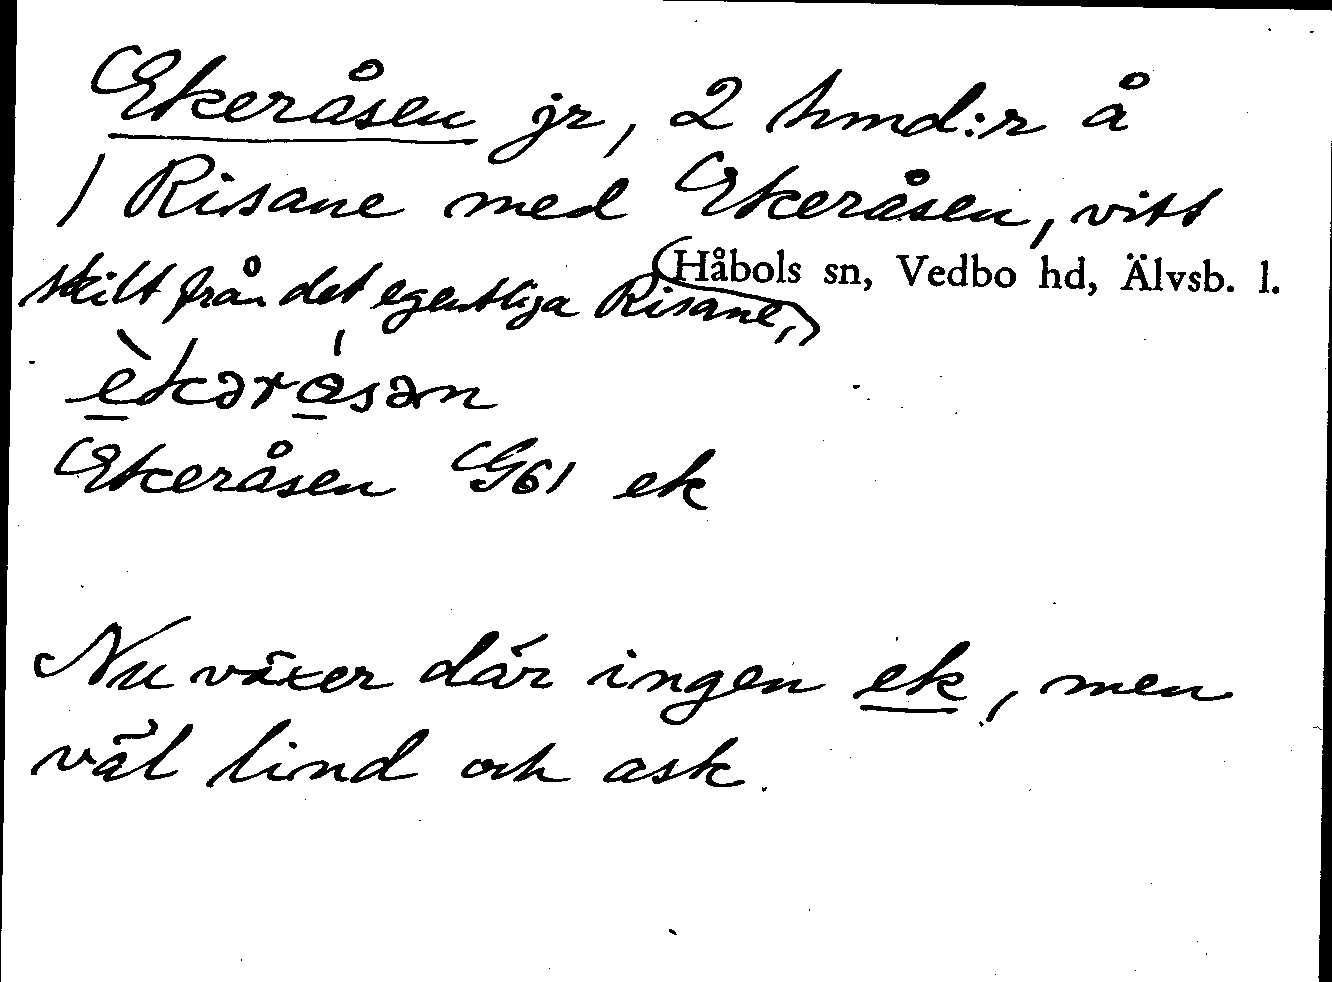 Ekeråsen jr, 2 hmd:r å
1 Risane med Ekeråsen, vitt
Håbols sn, Vedbo hd, Älvsb. l.
skilt från det egentliga Risane,
èkəråsən
Ekeråsen G61 ek
Nu växer där ingen ek, men
väl lind och ask.